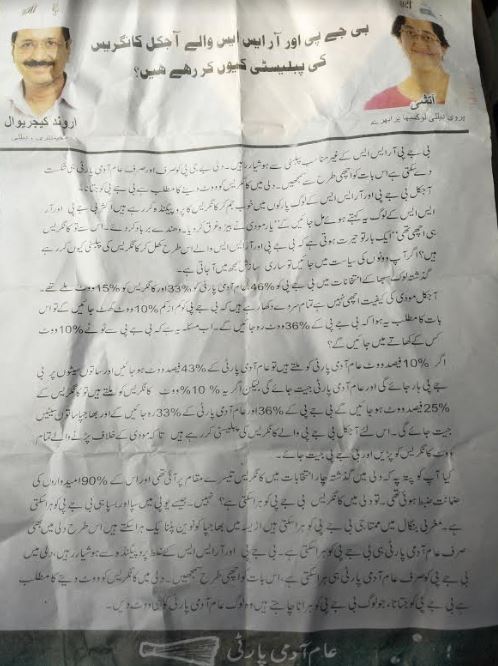 بی جے پی اور آر ایس ایس والے آجکل کانگریس
کی پبلیسٹی کیوں کر رہے ہیں؟
اروند کیجریوال
آتشی
بی جے پی آر ایس ایس کے غیر مناسب پبلیسٹی سے ہوشیار رہیں۔ دلی میں بی جے پی کو صرف اور صرف عام آدمی پارٹی ہی شکست
دے سکتی ہے اس بات کو اچھی طرح سے سمجھیں۔ دلی میں کانگریس کو ووٹ دینے کا مطلب ہے بی جے پی کو جتانا۔
آجکل بی جے پی اور آر ایس ایس کے لوگ پارکوں میں خوب جم کر کانگریس کا پروپیگنڈہ کر رہے ہیں اکثر بی جے پی اور آر
ایس ایس کے لوگ یہ کہتے ہوئے مل جائیں گے "یار مودی نے بیڑہ غرق کر دیا۔ دھندے برباد کر دئے۔ اس سے تو کانگریس
ہی اچھی تھی" ایک بار تو حیرت ہوتی ہے کہ بی جے پی اور آر ایس ایس والے اس طرح کھل کر کانگریس کی پبلسٹی کیوں کر رہے
ہیں؟ اگر آپ ووٹوں کی سیاست میں جائیں تو ساری سازش سمجھ میں آ جاتی ہے۔
گذشتہ لوک سبھا کے انتخابات میں بی جے پی کو 46% عام آدمی پارٹی کو 33% اور کانگریس کو 15% ووٹ ملے تھے۔
آجکل مودی کی کیفیت اچھی نہیں ہے تمام سروے دکھا رہے ہیں کہ بی جے پی کو کم از کم 10% ووٹ گھٹ جائیں گے تو اس
بات کا مطلب یہ ہوا کہ بی جے پی کے 36% ووٹ رہ جائیں گے۔ اب مسئلہ یہ ہے کہ بی جے پی سے ٹوٹے 10% ووٹ
کس کے کھاتے میں جائیں گے؟
اگر 10% فیصد ووٹ عام آدمی پارٹی کو ملتے ہیں تو عام آدمی پارٹی کے 43% فیصد ووٹ ہو جائیں گے اور ساتوں سیٹوں پر بی
جے پی ہار جائے گی اور عام آدمی پارٹی جیت جائے گی لیکن اگر یہ % 10% ووٹ کانگریس کو ملتے ہیں تو کانگریس کے
25% فیصد ووٹ ہو جائیں گے بی جے پی کے 36% اور عام آدمی پارٹی کے 33% رہ جائیں گے اور بھاجپا ساتوں سیٹیں
جیت جائے گی۔ اس لئے آجکل بی جے پی والے کانگریس کی پبلیسٹی کر رہے ہیں تاکہ مودی کے خلاف پڑنے والے تمام
ووٹ کانگریس کو پڑیں اور بی جے پی جیت جائے۔
کیا آپ کو پتہ ہے کہ دلی میں گذشتہ چار انتخابات میں کانگریس تیسرے مقام پر آئی تھی اور اس کے 90% امیدواروں کی
ضمانت ضبط ہوئی تھی۔ تو دلی میں کانگریس بی جے پی کو ہرا سکتی ہے؟ نہیں۔ جیسے یو پی میں سپا اور بسپا ہی بی جے پی کو ہرا سکتی
ہے۔ مغربی بنگال میں ممتا جی بی جے پی کو ہرا سکتی ہیں اڑیسہ میں بھاجپا کو نوین پٹنایک ہرا سکتے ہیں اس طرح دلی میں بھی
صرف عام آدمی پارٹی ہی بی جے پی کو ہرا سکتی ہے۔ بی جے پی اور آر ایس ایس کے غلط پروپیگنڈہ سے ہوشیار رہیں، دلی میں
بی جے پی کو صرف عام آدمی پارٹی ہی ہرا سکتی ہے، اس بات کو اچھی طرح سمجھیں۔ دلی میں کانگریس کو ووٹ دینے کا مطلب
ہے بی جے پی کو جتانا، جو لوگ بی جے پی کو ہرانا چاہتے ہیں وہ لوگ عام آدمی پارٹی کو ہی ووٹ دیں۔
عام آدمی پارٹی